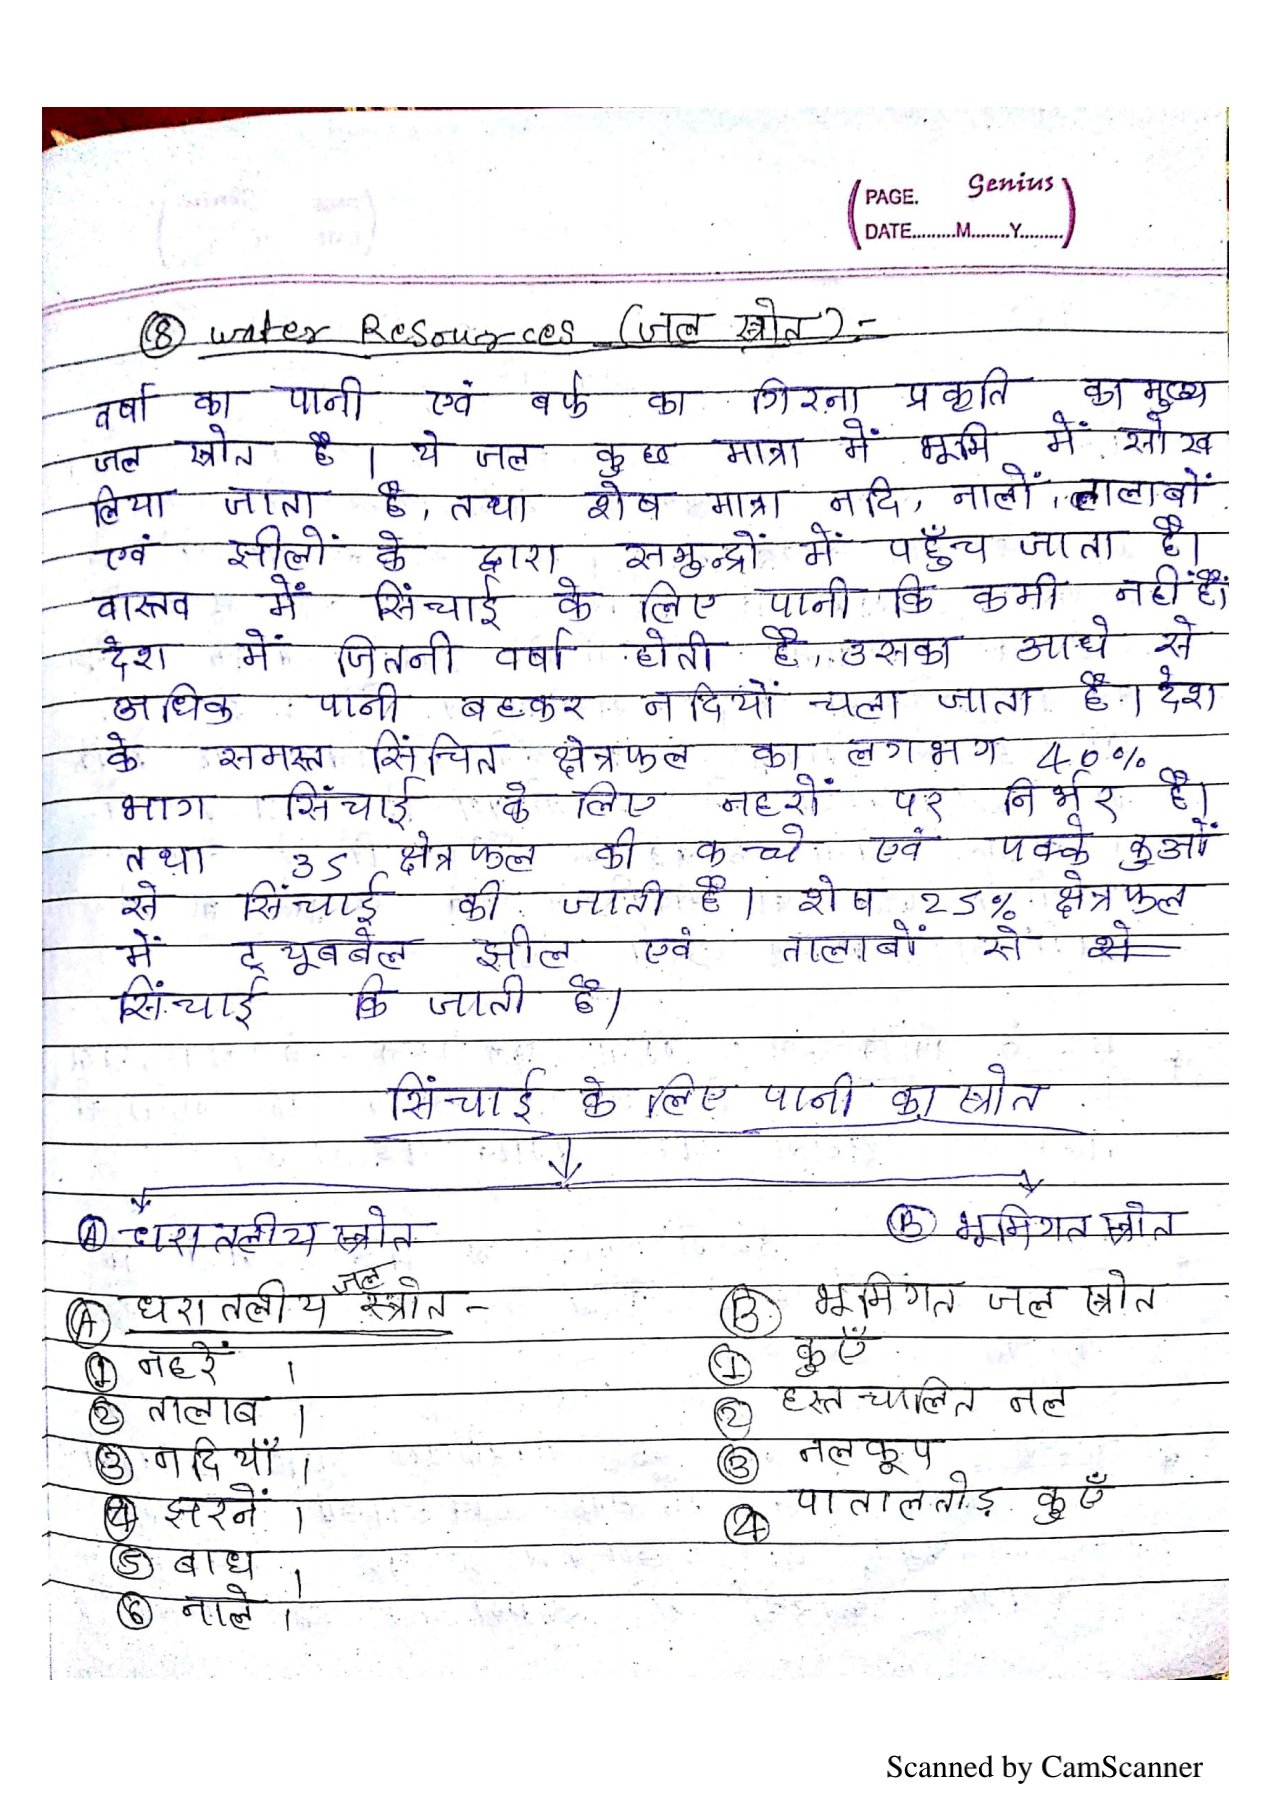 PAGE. Genius
DATE.........M........Y.........
⑧ water Resources (जल स्त्रोत) :-
वर्षा का पानी एवं बर्फ का गिरना प्रकृति का मुख्य
जल स्त्रोत है। ये जल कुछ मात्रा में भूमि में सोख
लिया जाता है, तथा शेष मात्रा नदि, नालों, तालाबों
एवं झीलों के द्वारा समुन्द्रों में पहुँच जाता है।
वास्तव में सिंचाई के लिए पानी कि कमी नहीं है।
देश में जितनी वर्षा होती है, उसका आधे से
अधिक पानी बहकर नदियों चला जाता है। देश
के समस्त सिंचित क्षेत्रफल का लगभग 40%
भाग सिंचाई के लिए नहरों पर निर्भर है।
तथा 35 क्षेत्रफल की कच्चे एवं पक्के कुओं
से सिंचाई की जाती है। शेष 25% क्षेत्रफल
में ट्यूबबेल झील एवं तालाबों से से
सिंचाई कि जाती है।
सिंचाई के लिए पानी का स्त्रोत
Ⓐ धरातलीय स्त्रोत Ⓑ भूमिगत स्त्रोत
Ⓐ धरातलीय जल स्त्रोत - Ⓑ भूमिगत जल स्त्रोत
① नहरें । ① कुएँ
② तालाब । ② हस्तचालित नल
③ नदियाँ । ③ नलकूप
④ झरनें । ④ पातालतोड़ कुएँ
⑤ बाध ।
⑥ नाले ।
Scanned by CamScanner